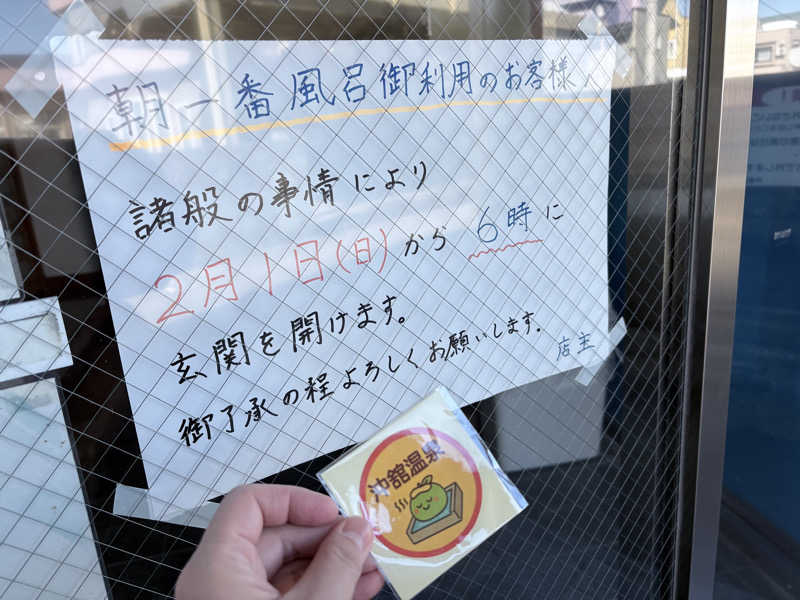 朝一番風呂御利用のお客様へ
諸般の事情により
2月1日(日)から6時に
玄関を開けます。
御了承の程よろしくお願いします。
店主
沖舘温泉